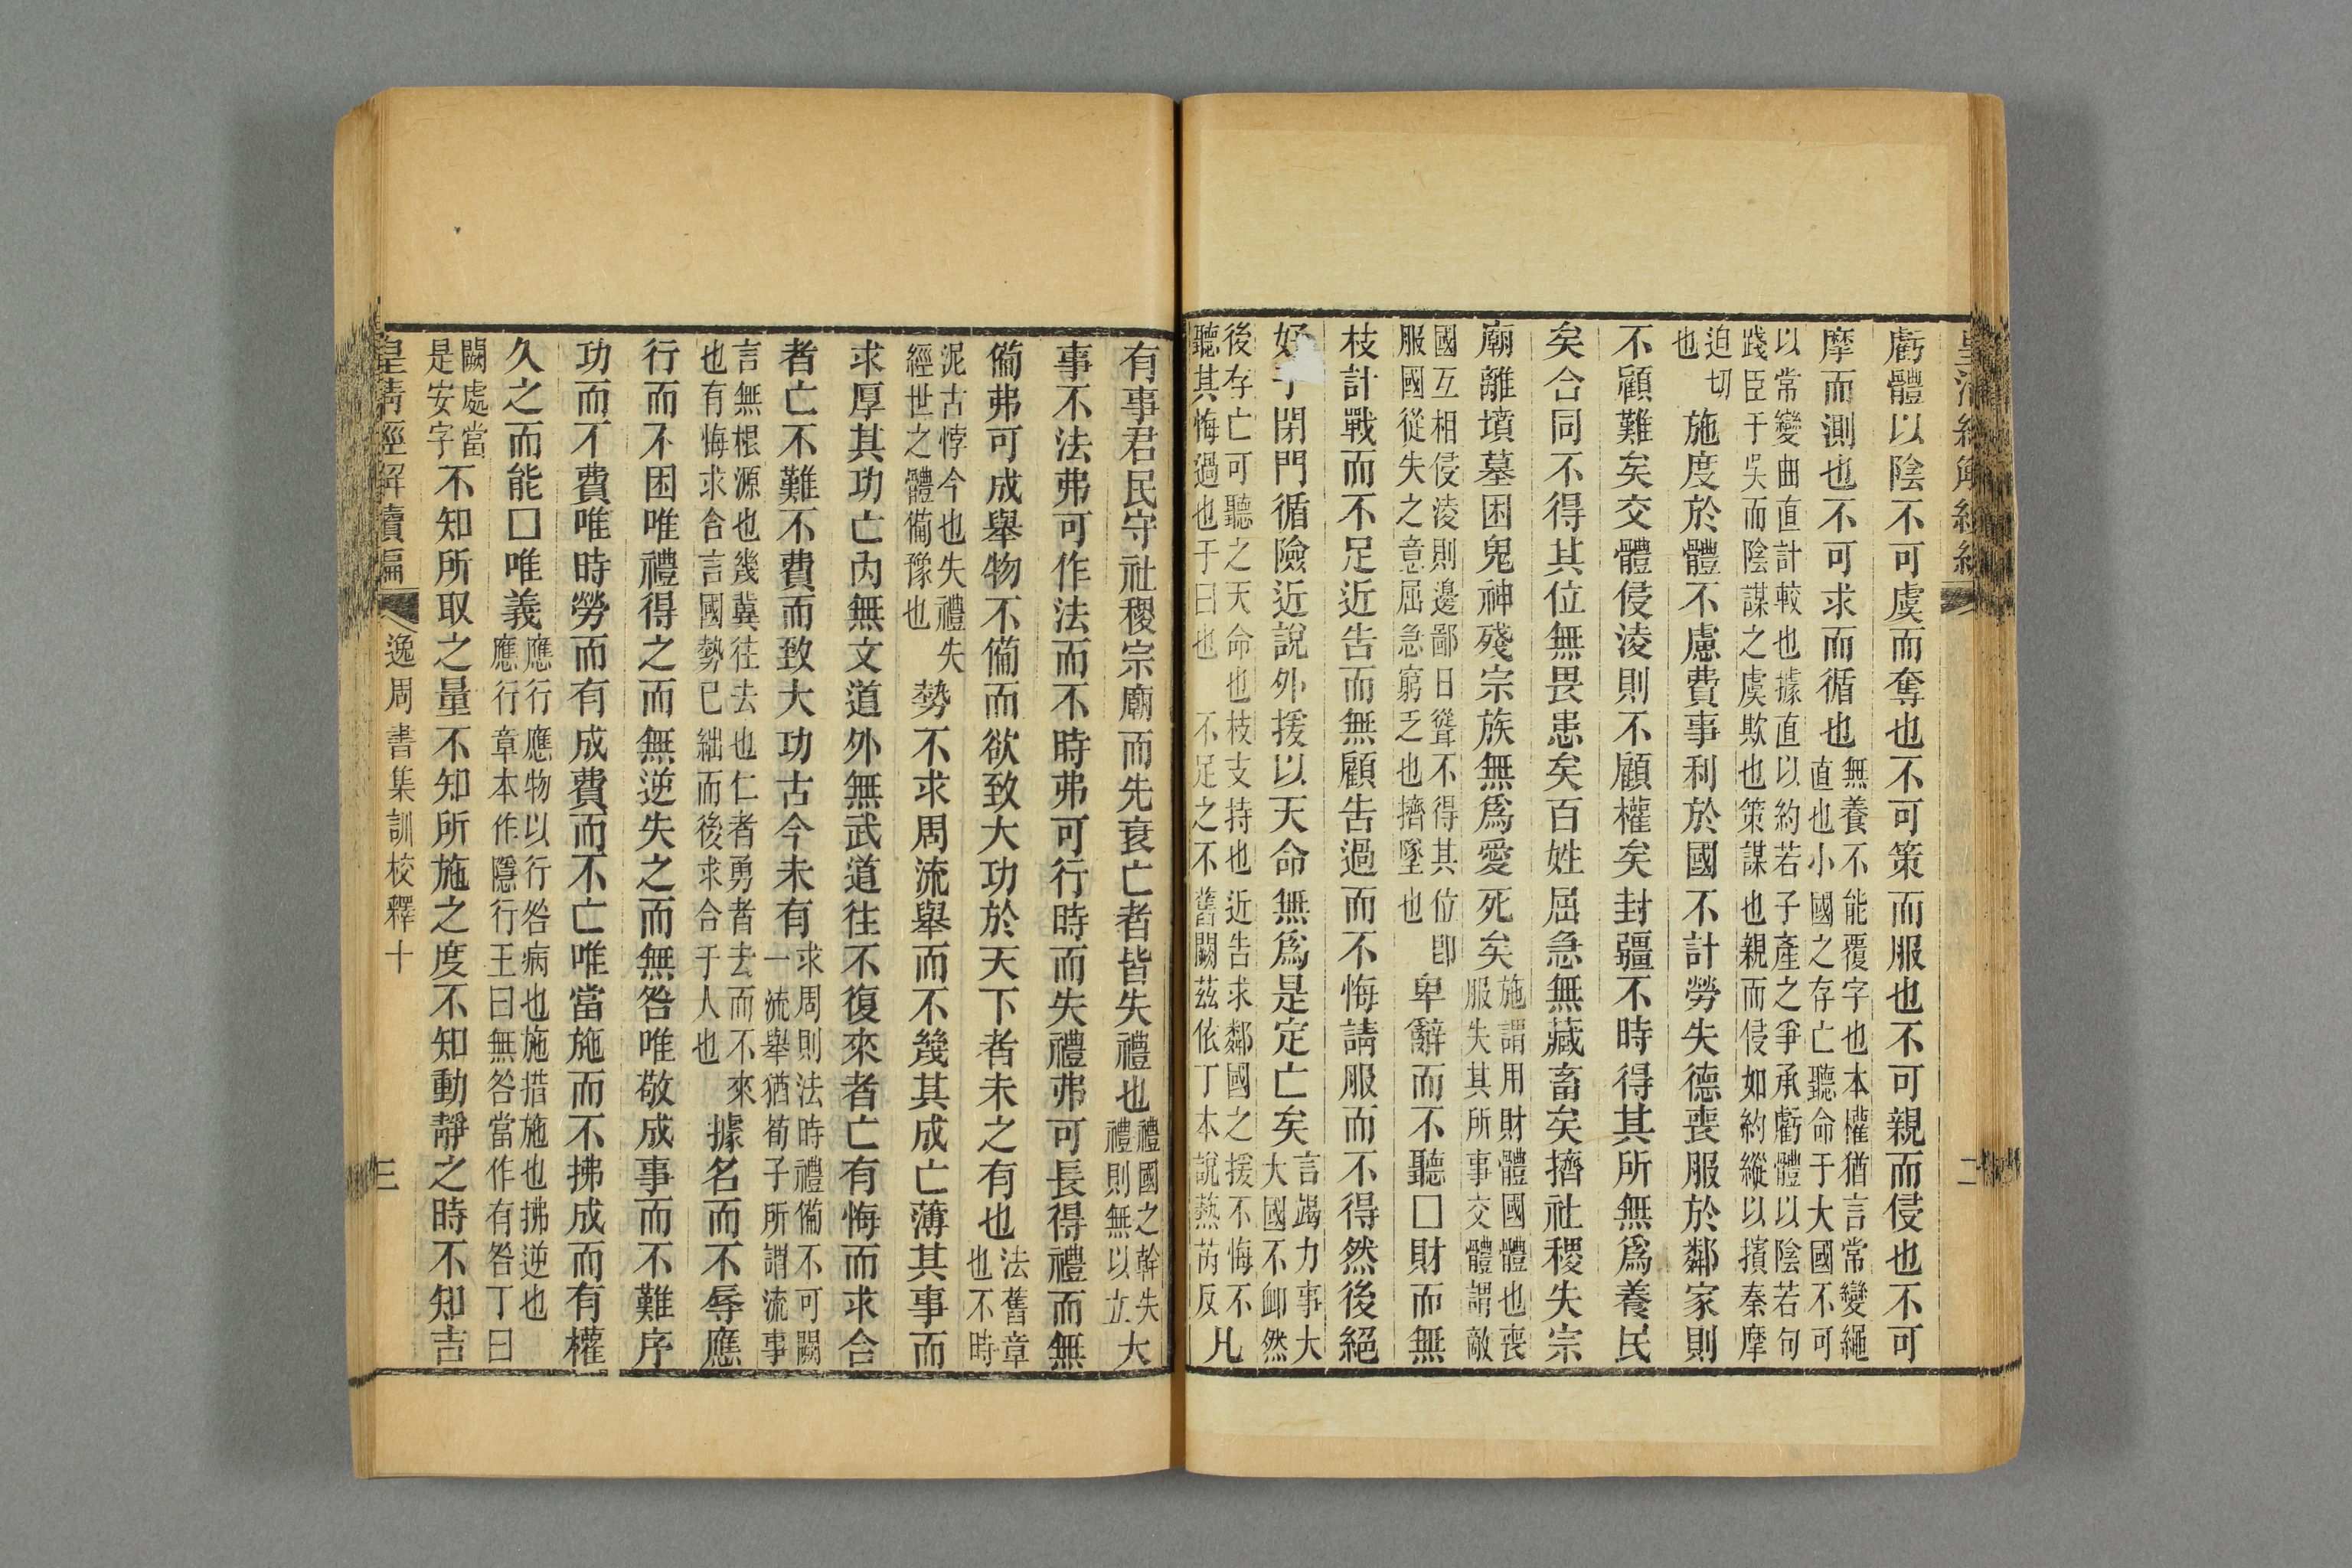 虧體以陰不可虞而奪也不可策而服也不可親而侵也不可
摩而測也不可求而循也
無養不能覆字也本權猶言常變繩
直也小國之存亡聽命于大國不可
以常變曲直計較也據直以約若子產之爭承虧體以陰若句
踐臣于吳而陰謀之虞欺也策謀也親而侵如約縱以擯秦摩
迫切
也
施度於體不慮費事利於國不計勞失德喪服於鄰家則
不顧難矣交體侵淩則不顧權矣封疆不時得其所無爲養民
矣合同不得其位無畏患矣百姓屈急無藏畜矣擠社稷失宗
廟離墳墓困鬼神殘宗族無爲愛死矣
施謂用財體國體也喪
服失其所事交體謂敵
國互相侵淩則邊鄙日聳不得其位卽
服國從失之意屈急窮乏也擠墜也
卑辭而不聽□財而無
枝計戰而不足近告而無顧告過而不悔請服而不得然後絕
好于閉門循險近說外援以天命無爲是定亡矣
言竭力事大
大國不卹然
後存亡可聽之天命也枝支持也近告求鄰國之援不悔不
聽其悔過也于曰也不足之不舊闕茲依丁本說熱芮反
凡
二
有事君民守社稷宗廟而先衰亡者皆失禮也
禮國之幹失
禮則無以立
大
事不法弗可作法而不時弗可行時而失禮弗可長得禮而無
備弗可成舉物不備而欲致大功於天下者未之有也
法舊章
也不時
泥古悖今也失禮失
經世之體備豫也
勢不求周流舉而不幾其成亡薄其事而
求厚其功亡內無文道外無武道往不復來者亡有悔而求合
者亡不難不費而致大功古今未有
求周則法時禮備不可闕
一流舉猶荀子所謂流事
言無根源也幾冀往去也仁者勇者去而不來
也有悔求合言國勢已絀而後求合于人也
據名而不辱應
行而不困唯禮得之而無逆失之而無咎唯敬成事而不難序
功而不費唯時勞而有成費而不亡唯當施而不拂成而有權
久之而能□唯義
應行應物以行咎病也施措施也拂逆也
應行章本作隱行王曰無咎當作有咎丁曰
闕處當
是安字
不知所取之量不知所施之度不知動靜之時不知吉
皇清經解續編
逸周書集訓校釋十
三